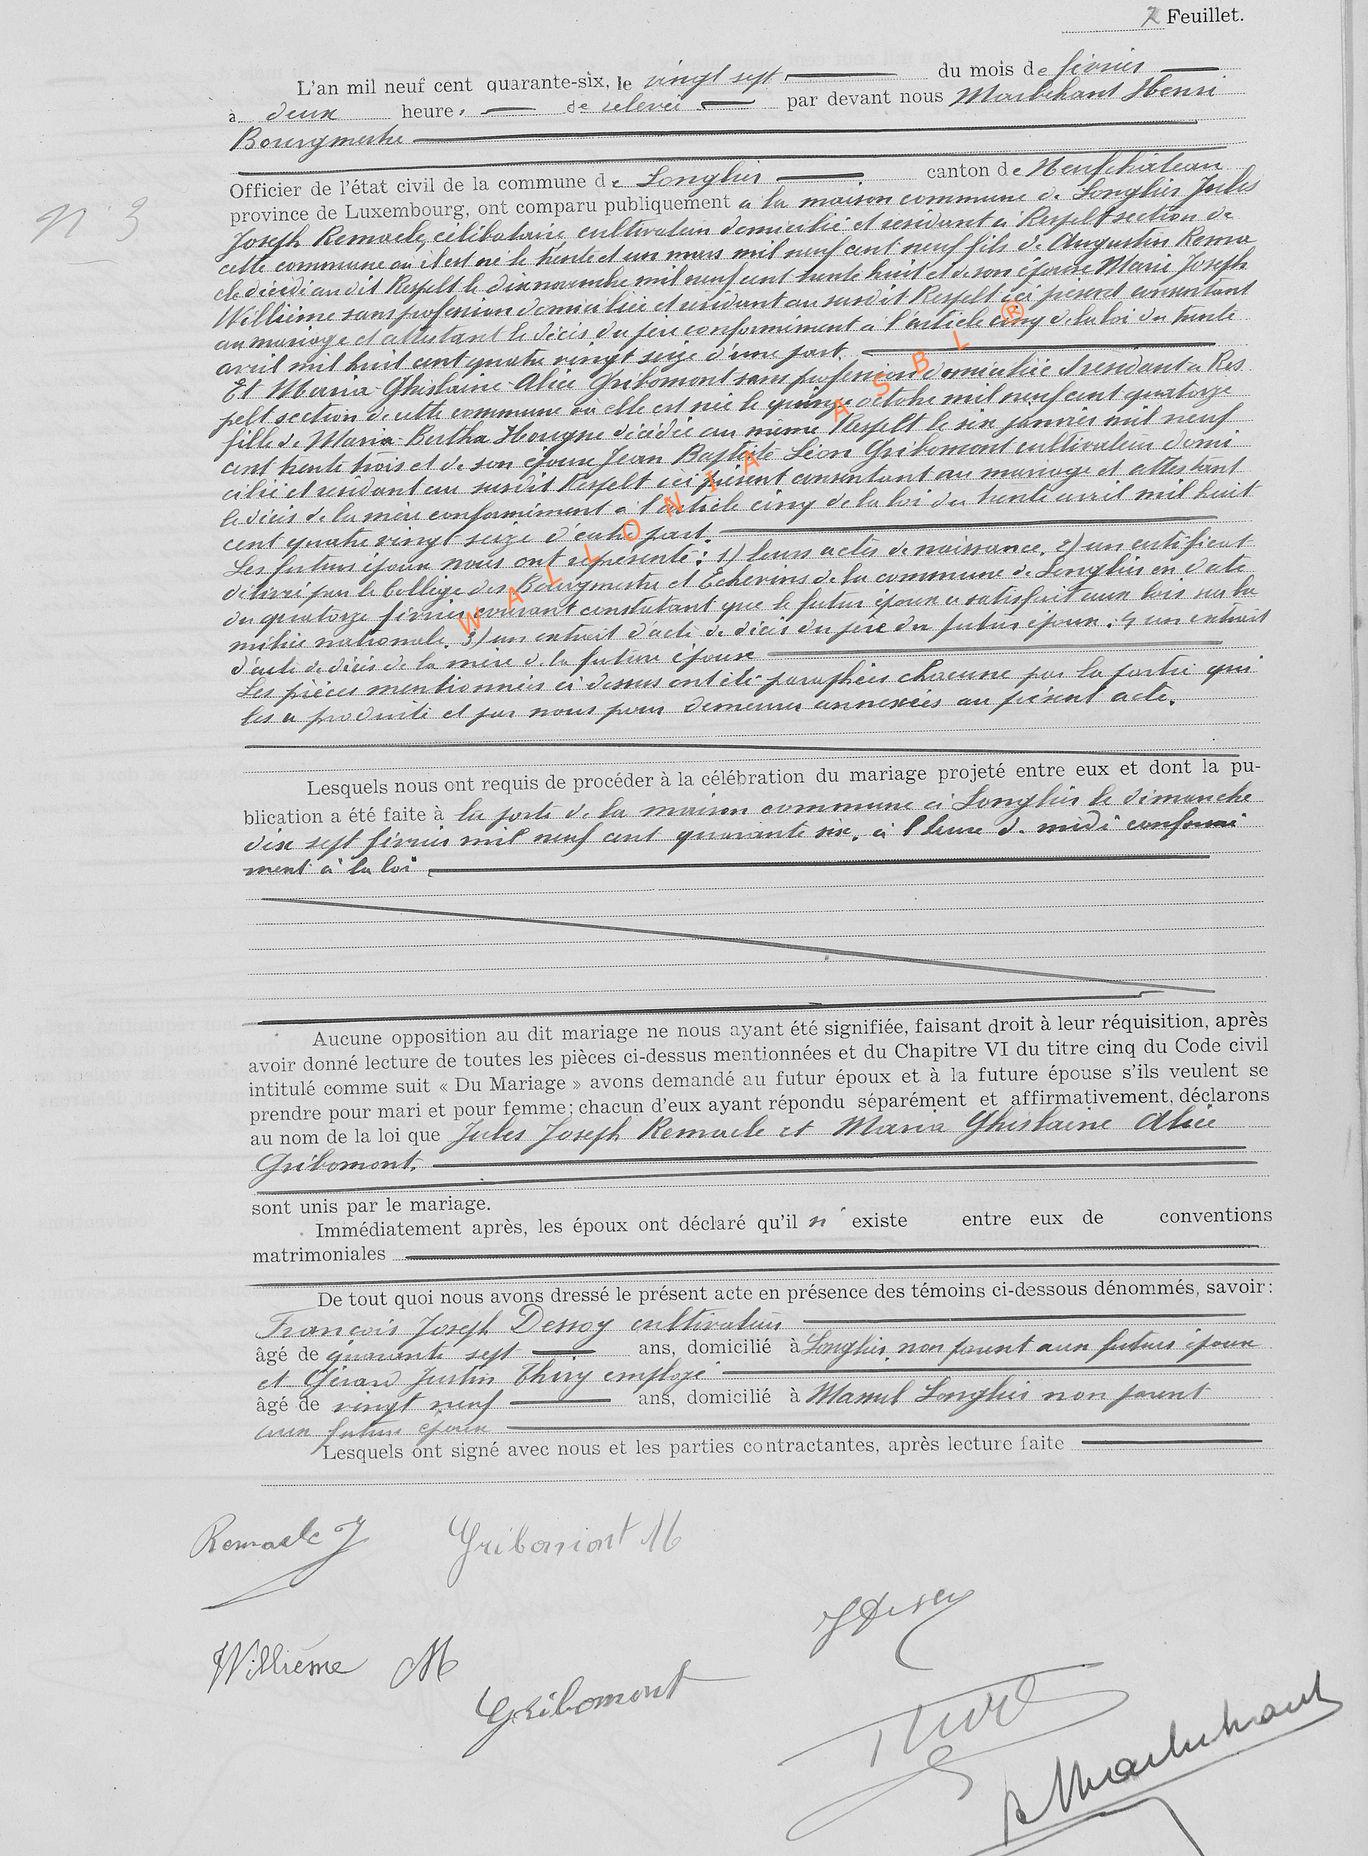 2 Feuillet.
L'an mil neuf cent quarante-six, le vingt sept du mois de février
à deux heure, de relevée par devant nous Marbehant Henri
Bourgmestre
Officier de l'état civil de la commune de Longlier canton de Neufchâteau
N 3
province de Luxembourg, ont comparu publiquement a la maison commune de Longlier Jules
Joseph Remacle, célibataire cultivateur domicilié et résidant à Respelt section de
cette commune où il est né le trente et un mars mil neuf cent neuf fils de Augustin Rema
cle décédé au dit Respelt le dix novembre mil neuf cent trente huit et de son épouse Marie Joseph
Willième sans profession domiciliée et résidant au susdit Respelt ici présent consentant
au mariage et attestant le décès du père conformément à l'article cinq de la loi du trente
avril mil huit cent quatre vingt seize d'une part.
Et Maria Ghislaine Alice Gribomont sans profession domiciliée et résidant à Res
pelt section de cette commune ou elle est née le quinze octobre mil neuf cent quatorze
fille de Maria Bertha Hougne décédée au même Respelt le six janvier mil neuf
cent trente trois et de son époux Jean Baptiste Léon Gribomont cultivateur domi
cilié et résidant au susdit Respelt ici présent consentant au mariage et attestant
le décès de la mère conformément a l'article cinq de la loi du trente avril mil huit
cent quatre vingt seize d'autre part.
Les futurs époux nous ont représenté : 1) leurs actes de naissance. 2) un certificat
délivré par le collège des Bourgmestre et Echevins de la commune de Longlier en date
du quatorze février courant constatant que le futur époux a satisfait aux lois sur la
milice nationale. 3) un extrait d'acte de décès du père du futur époux : 4 un extrait
d'acte de décès de la mère de la future épouse
Les pièces mentionnées ci dessus ont été paraphées chacune par la partie qui
les a produite et par nous pour demeurer annexées au présent acte.
WALLONIA ASBL ®
Lesquels nous ont requis de procéder à la célébration du mariage projeté entre eux et dont la pu-
blication a été faite à la porte de la maison commune à Longlier le dimanche
dix sept février mil neuf cent quarante six, à l'heure de midi conformé
ment à la loi
Aucune opposition au dit mariage ne nous ayant été signifiée, faisant droit à leur réquisition, après
avoir donné lecture de toutes les pièces ci-dessus mentionnées et du Chapitre VI du titre cinq du Code civil
intitulé comme suit « Du Mariage » avons demandé au futur époux et à la future épouse s'ils veulent se
prendre pour mari et pour femme; chacun d'eux ayant répondu séparément et affirmativement, déclarons
au nom de la loi que Jules Joseph Remacle et Maria Ghislaine Alice
Gribomont.
sont unis par le mariage.
Immédiatement après, les époux ont déclaré qu'il n' existe entre eux de conventions
matrimoniales
De tout quoi nous avons dressé le présent acte en présence des témoins ci-dessous dénommés, savoir:
François Joseph Dessoy cultivateur
âgé de quarante sept ans, domicilié à Longlier, non parent aux futurs époux
et Gérard Justin Thiry employé
âgé de vingt neuf ans, domicilié à Massul Longlier non parent
aux futurs époux
Lesquels ont signé avec nous et les parties contractantes, après lecture faite
Remacle J
Gribomont M
J Dessoy
Willième M
Gribomont
Thiry
H Marbehant